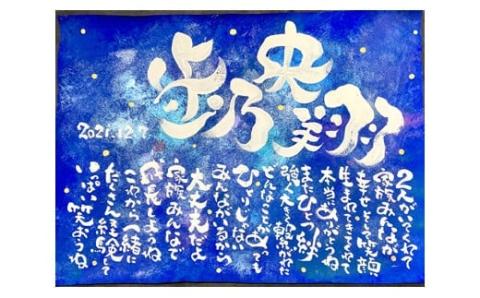 央翔
歩乃
2021.12.7
2人がいてくれて
家族みんなが
幸せそして笑顔に
生まれてきてくれて
本当にありがとうね
またひとつ絆が
強く大きく
どんなことがあっても
ひとりじゃない
みんながいるから。
大丈夫だよ
家族みんなで
成長しようね
これから一緒に
たくさん経験して
いっぱい笑おうね。